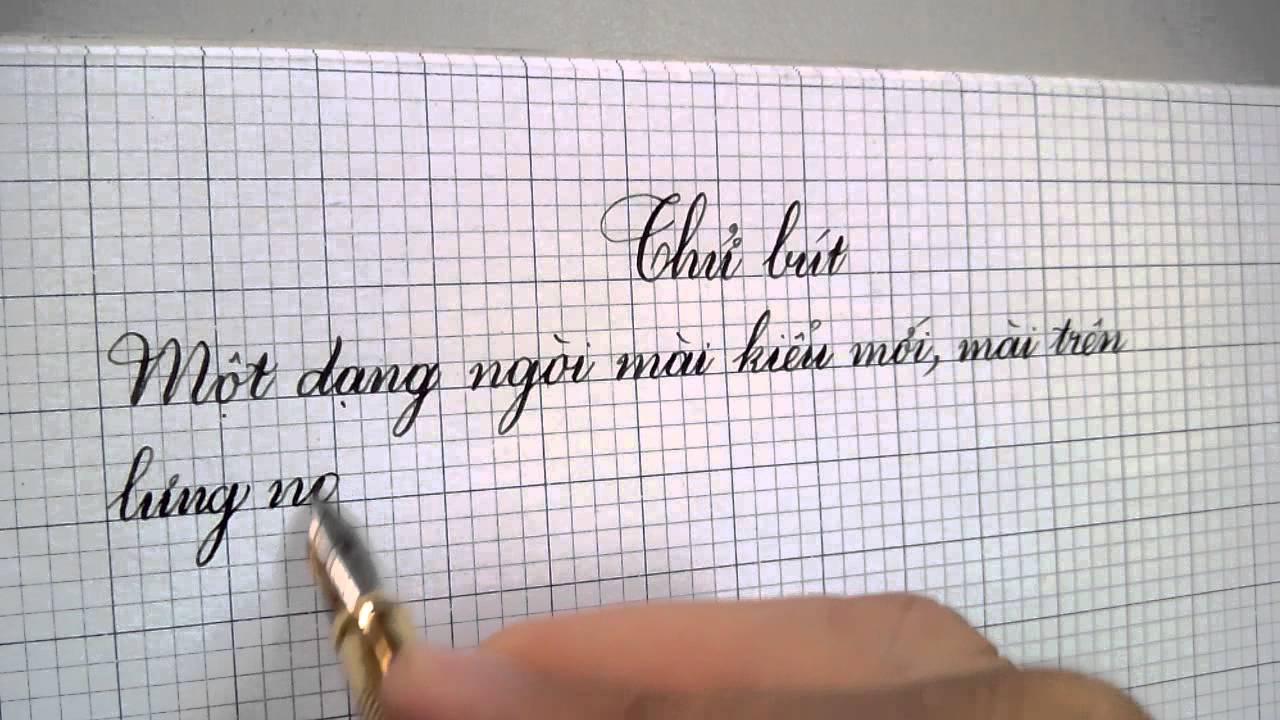 Thử bút
Một dạng ngòi mài kiểu mới, mài trên
lưng